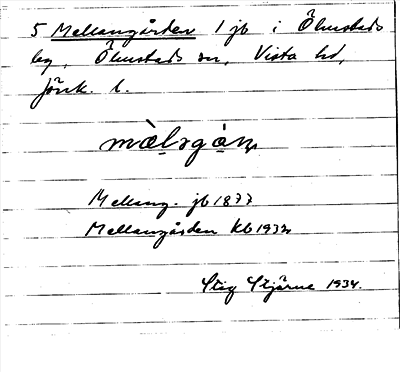 5 Mellangården 1 jb i Ölmstads
by, Ölmstads sn, Vista hd,
Jönk. l.
Mellang. jb 1877
Mellangården kb 1932
Stig Stjärne 1934.